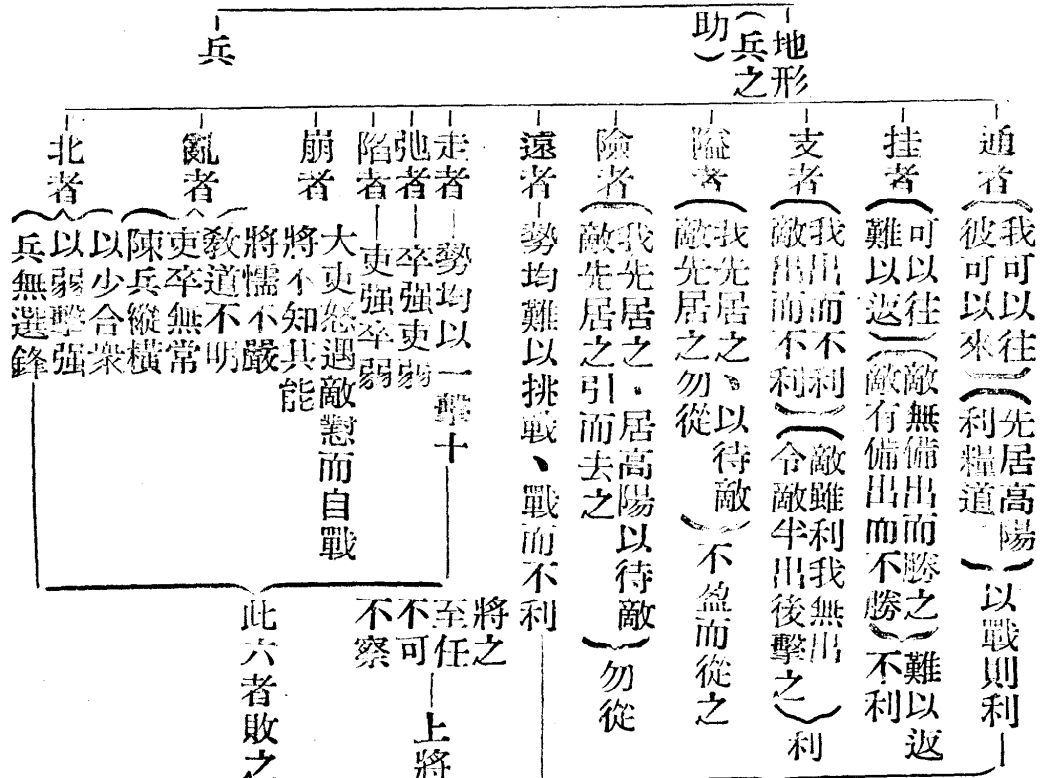 地形
（兵之
助）
兵
通者
我可以往
彼可以來
先居高陽
利糧道
以戰則利
挂者
可以往
難以返
敵無備出而勝之
敵有備出而不勝
難以返
不利
支者
我出而不利
敵出而不利
敵雖利我無出
令敵半出後擊之
利
隘者
我先居之、以待敵
敵先居之勿從
不盈而從之
險者
我先居之．居高陽以待敵
敵先居之引而去之
勿從
遠者
勢均難以挑戰、戰而不利
走者
勢均以一擊十
弛者
卒强吏弱
陷者
吏强卒弱
崩者
大吏怒遇敵懟而自戰
將不知其能
亂者
將懦不嚴
敎道不明
吏卒無常
陳兵縱橫
北者
以少合衆
以弱擊强
兵無選鋒
將之
至任
不可
不察
上將
此六者敗之